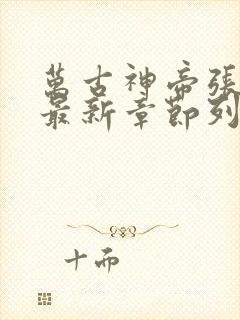 萬古神帝張
最新章節列
十而